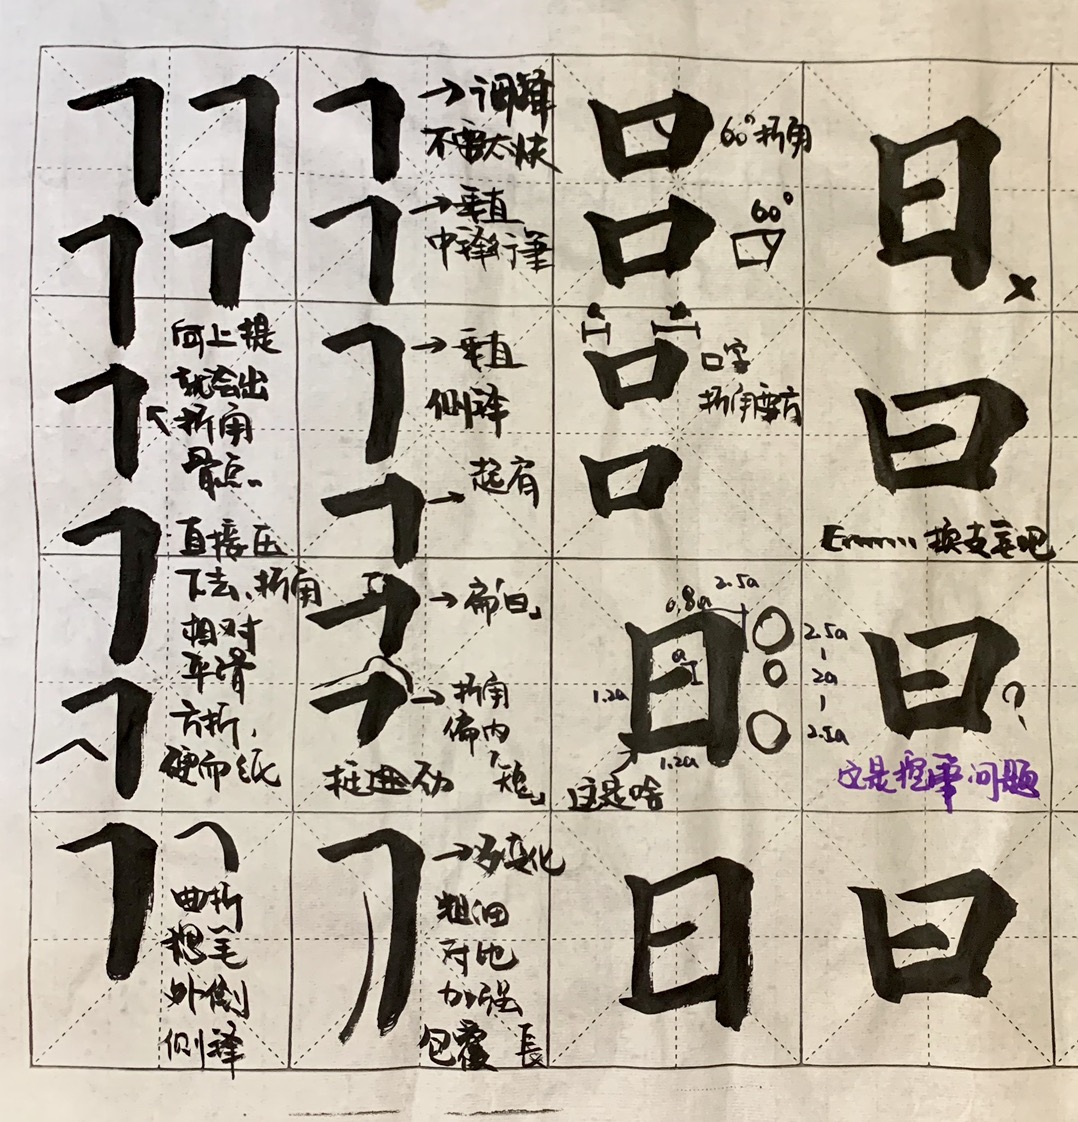 向上提
就会出
折角
骨点。
直接压
下去、折角
相对
平滑
方折，
硬而
曲折
把毛
外侧
侧锋
→调锋
不要太快
→垂直
中锋行筆
→垂直
侧锋
→起肩
→扁「日」
→折角
偏内
「短」
→多变化
粗细
对比
加强
包覆 長
口
60°折角
口
60°
口
口字
折角要方
口
2.5a
0.8a
日
a
1.2a
1.2a
2.5a
2a
2.5a
这是啥
日
日
×
曰
E······· 换支毛吧
曰
这是把章问题
曰